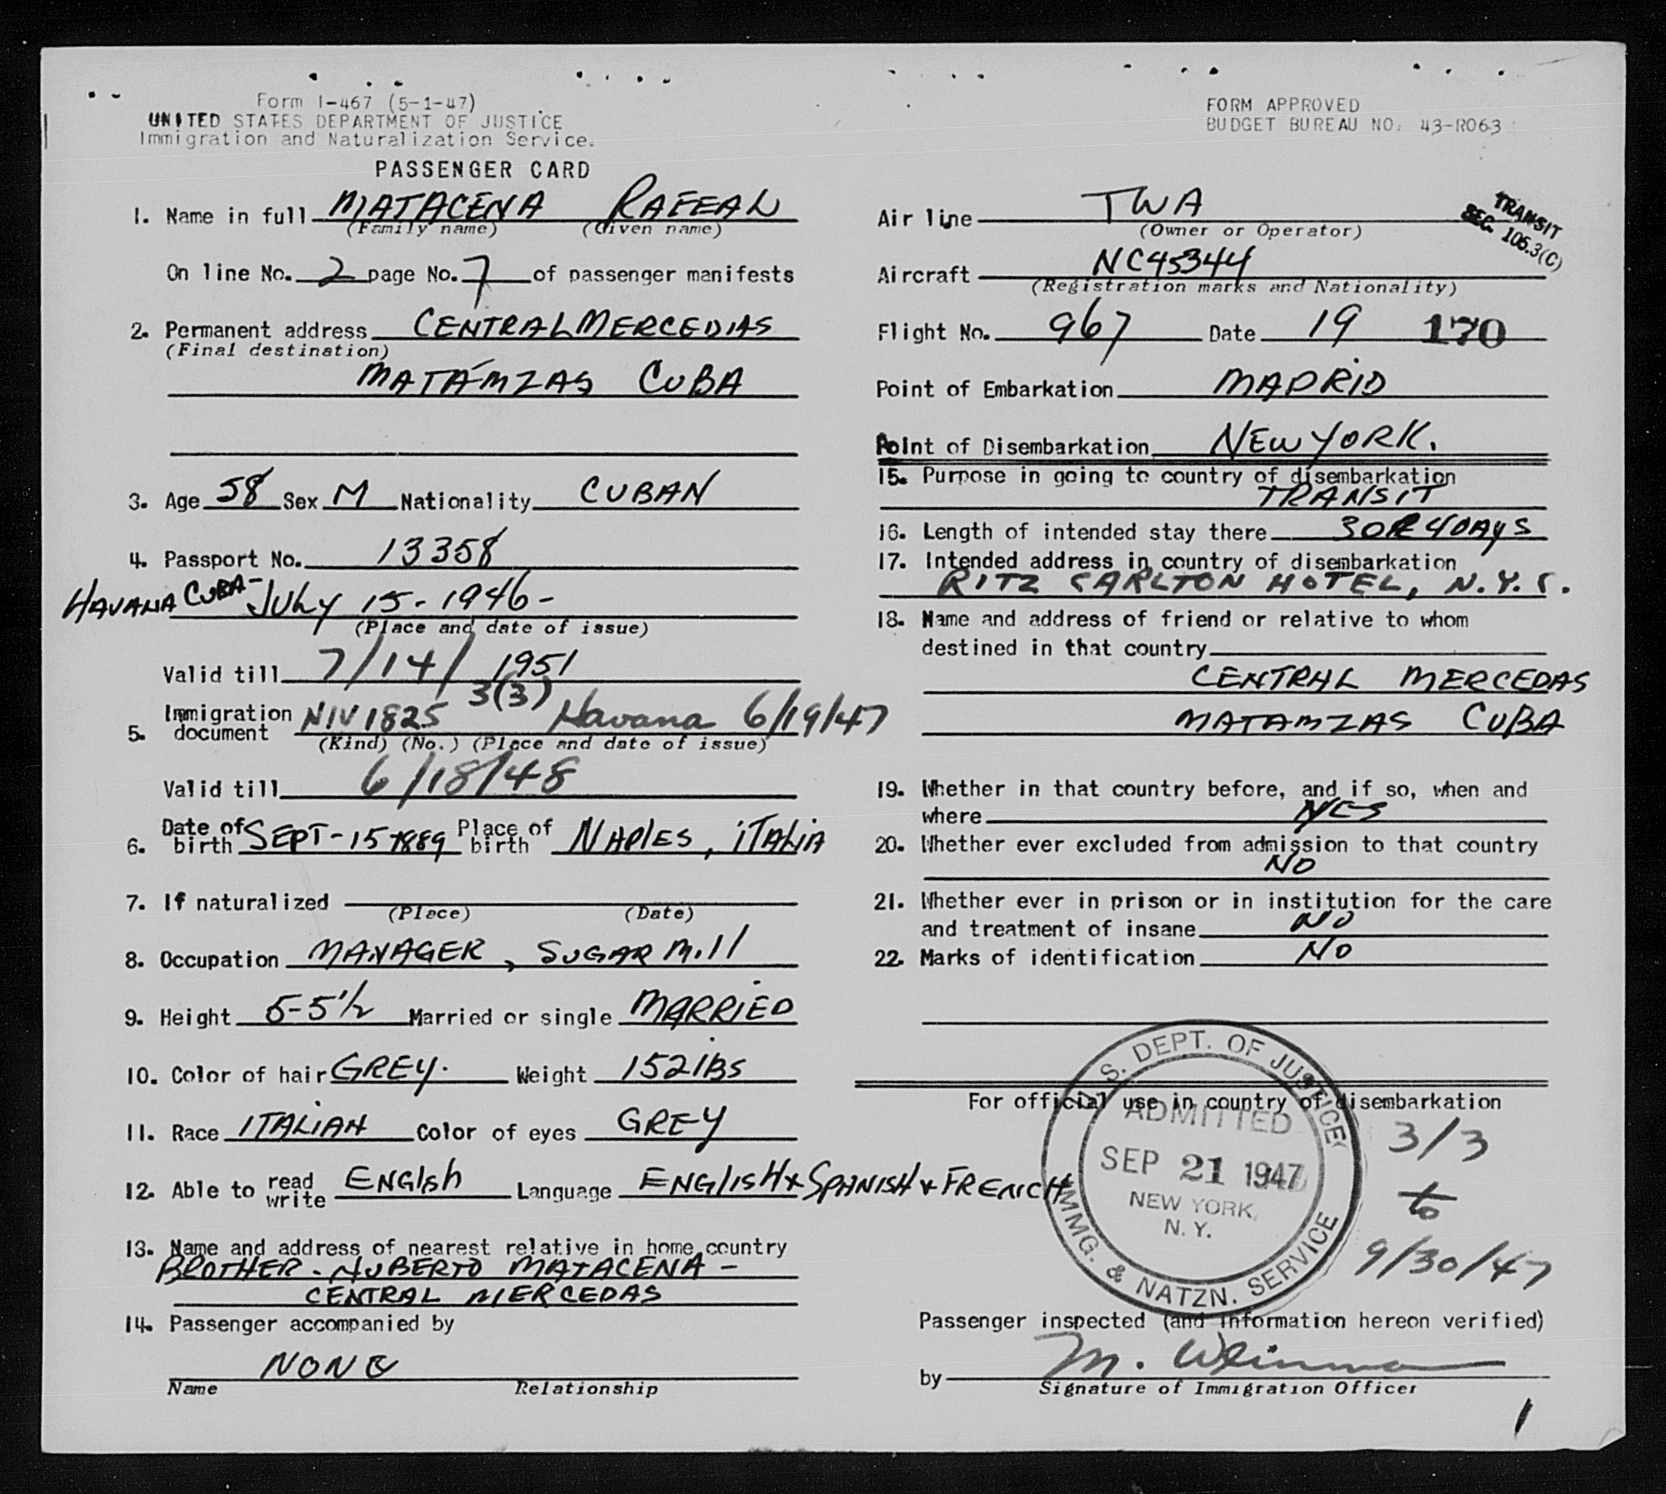 Form I-467 (5-1-47)
UNITED STATES DEPARTMENT OF JUSTICE
Immigration and Naturalization Service.
FORM APPROVED
BUDGET BUREAU NO. 43-R063
PASSENGER CARD
1. Name in full MATACENA RAFEAL
(Family name) (Given name)
On line No. 2 page No. 7 of passenger manifests
2. Permanent address CENTRAL MERCEDIAS
(Final destination)
MATAMZAS CUBA
3. Age 58 Sex M Nationality CUBAN
4. Passport No. 13358
HAVANA CUBA - JULY 15 - 1946 -
(Place and date of issue)
Valid till 7/14/1951
3(3)
5. Immigration document NIV 1825 Havana 6/19/47
(Kind) (No.) (Place and date of issue)
Valid till 6/18/48
6. Date of birth SEPT - 15 1889 Place of birth NAPLES, ITALIA
7. If naturalized
(Place) (Date)
8. Occupation MANAGER, SUGAR MILL
9. Height 5-5 1/2 Married or single MARRIED
10. Color of hair GREY. Weight 152 lBS
11. Race ITALIAN Color of eyes GREY
12. Able to read write ENGlsh Language ENGLISH + SPANISH + FRENCH
13. Name and address of nearest relative in home country
BROTHER - NUBERTO MATACENA -
CENTRAL MERCEDAS
14. Passenger accompanied by
NONE
Name Relationship
Air line TWA
(Owner or Operator)
TRANSIT
SEC. 105.3(C)
Aircraft NC45344
(Registration marks and Nationality)
Flight No. 967 Date 19 170
Point of Embarkation MADRID
Point of Disembarkation NEW YORK.
15. Purpose in going to country of disembarkation
TRANSIT
16. Length of intended stay there 3 OR 4 DAYS
17. Intended address in country of disembarkation
RITZ CARLTON HOTEL, N.Y.C.
18. Name and address of friend or relative to whom
destined in that country
CENTRAL MERCEDAS
MATAMZAS CUBA
19. Whether in that country before, and if so, when and
where YES
20. Whether ever excluded from admission to that country
NO
21. Whether ever in prison or in institution for the care
and treatment of insane NO
22. Marks of identification NO
For official use in country of disembarkation
U.S. DEPT. OF JUSTICE
ADMITTED
SEP 21 1947
NEW YORK,
N. Y.
IMMG. & NATZN. SERVICE
3/3
to
9/30/47
Passenger inspected (and information hereon verified)
by M. Weinman
Signature of Immigration Officer
1